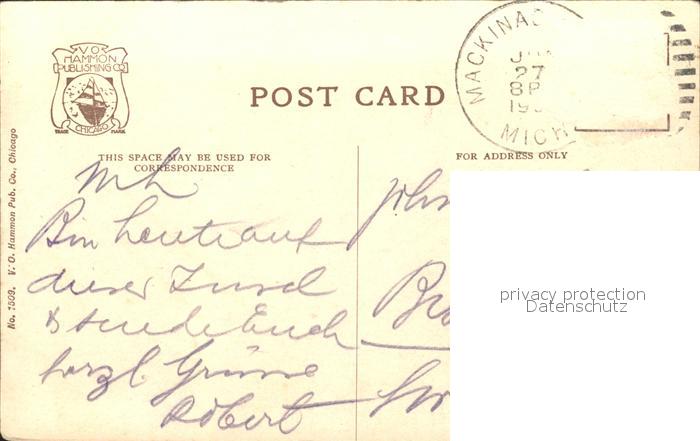 V. O.
HAMMON
PUBLISHING CO.
TRADE MARK
CHICAGO
POST CARD
MACKINAC
27
8P
19
MICH
THIS SPACE MAY BE USED FOR
CORRESPONDENCE
FOR ADDRESS ONLY
No. 1509. V. O. Hammon Pub. Co., Chicago
Bin heute auf
dieser Insel
& sende Euch
herzl. Grüsse
Robert
John
privacy protection
Datenschutz